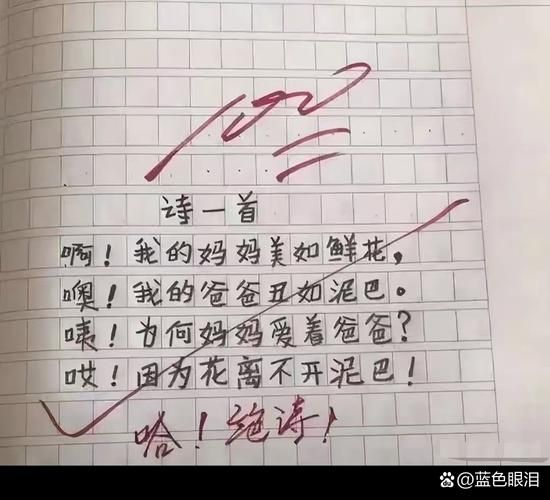 100
诗一首
啊！我的妈妈美如鲜花，
噢！我的爸爸丑如泥巴。
咦！为何妈妈爱着爸爸？
哎！因为花离不开泥巴！
哈！绝诗！
@蓝色眼泪